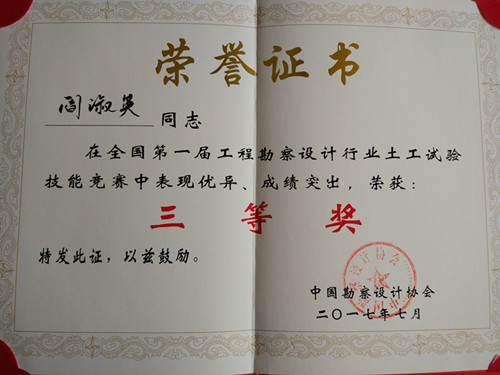 荣誉证书
阎淑英 同志
在全国第一届工程勘察设计行业土工试验
技能竞赛中表现优异、成绩突出，荣获：
三等奖
特发此证，以兹鼓励。
中国勘察设计协会
二〇一七年七月